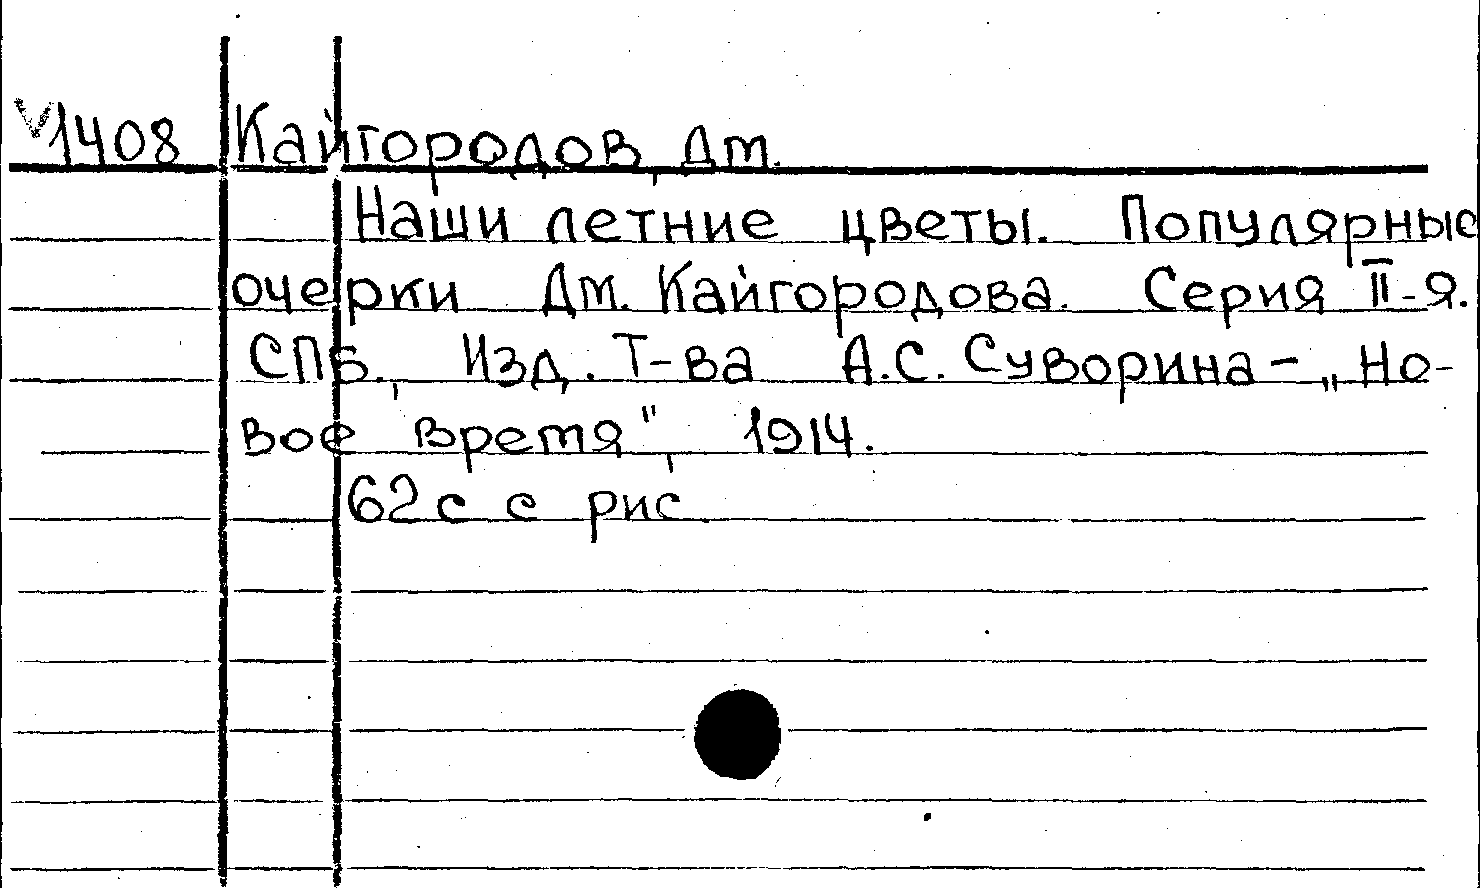 1408 Кайгородов, Дм.
Наши летние цветы. Популярные
очерки Дм. Кайгородова. Серия II-я.
СПБ., Изд. Т-ва А.С. Суворина - „Но-
вое время", 1914.
62 с с рис